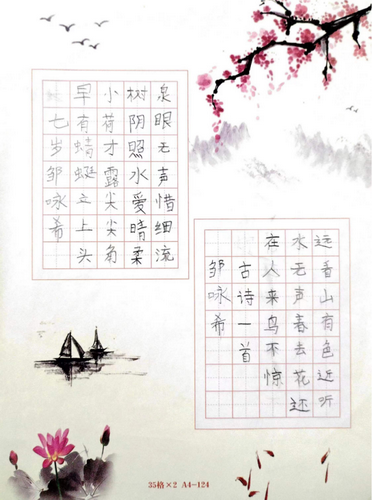 泉眼无声惜细流
树阴照水爱晴柔
小荷才露尖尖角
早有蜻蜓立上头
七岁邹咏希
远看山有色近听
水无声春去花还
在人来鸟不惊
古诗一首
邹咏希
35格×2 A4-124